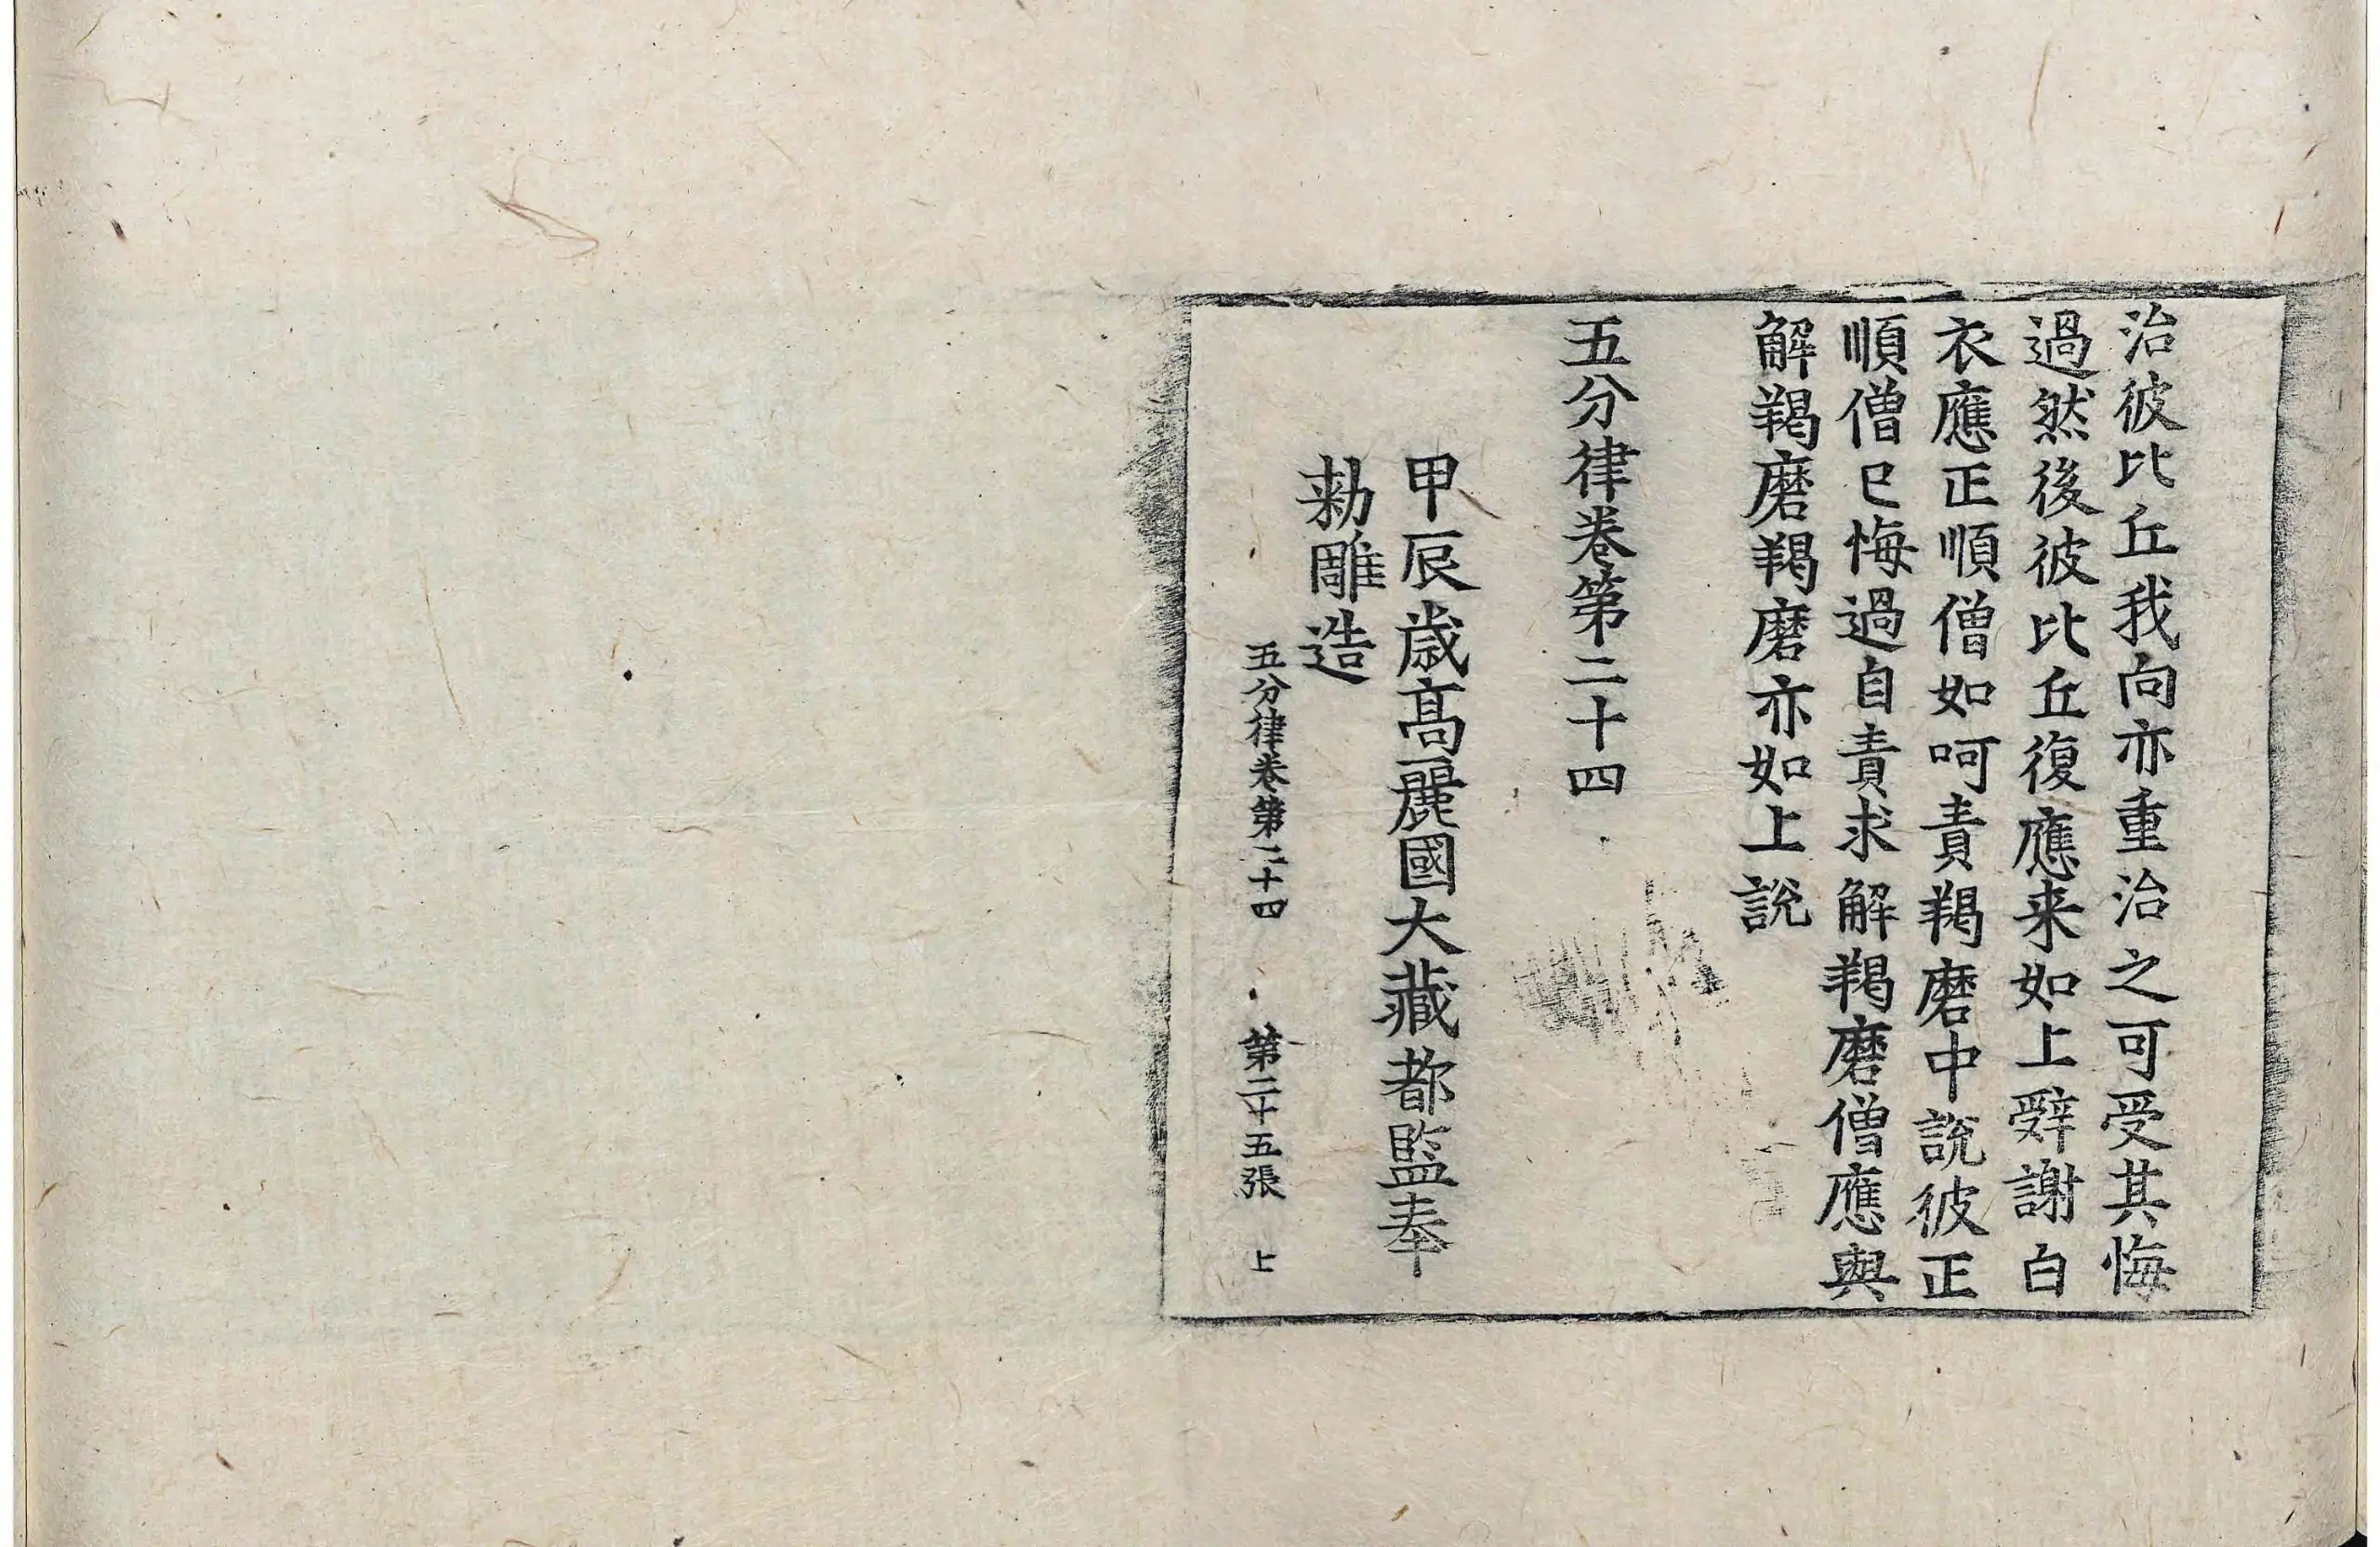 治彼比丘我向亦重治之可受其悔
過然後彼比丘復應来如上辤謝白
衣應正順僧如呵責羯磨中說彼正
順僧已悔過自責求解羯磨僧應與
解羯磨羯磨亦如上說
五分律卷第二十四
甲辰歳高麗國大藏都監奉
勅雕造
五分律卷第二十四 第二十五張 上